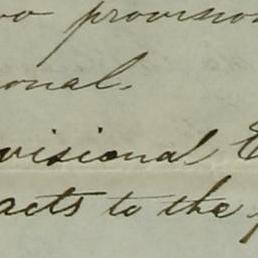 provision
onal.
visional E
acts to the